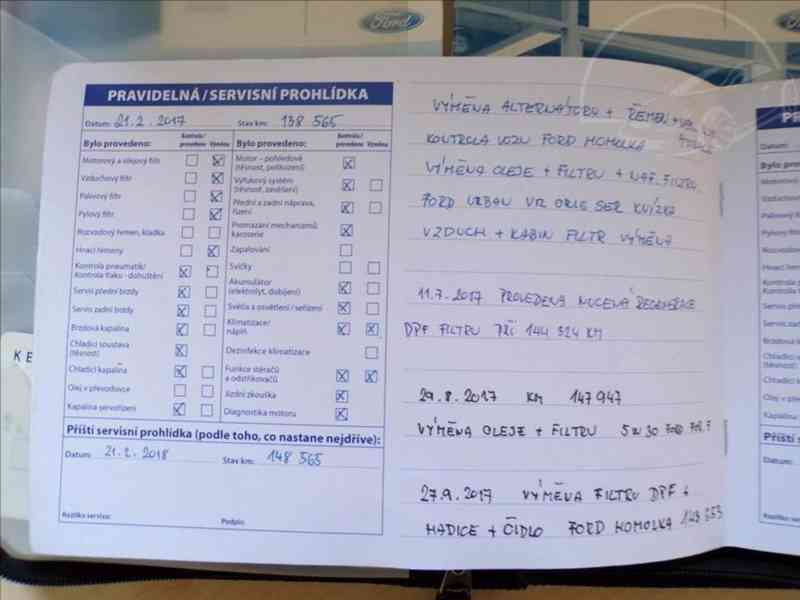 Ford
Ford
PRAVIDELNÁ / SERVISNÍ PROHLÍDKA
Datum: 21.2.2017 Stav km: 138 565
Bylo provedeno: Kontrola/provedeno Výměna
Motorový a olejový filtr
Vzduchový filtr
Palivový filtr
Pylový filtr
Rozvodový řemen, kladka
Hnací řemeny
Kontrola pneumatik/
Kontrola tlaku - dohuštění
Servis přední brzdy
Servis zadní brzdy
Brzdová kapalina
Chladicí soustava
(těsnost)
Chladicí kapalina
Olej v převodovce
Kapalina servořízení
Bylo provedeno: Kontrola/provedeno Výměna
Motor – pohledově
(těsnost, poškození)
Výfukový systém
(těsnost, zavěšení)
Přední a zadní náprava,
řízení
Promazání mechanizmů
karoserie
Zapalování
Svíčky
Akumulátor
(elektrolyt, dobíjení)
Světla a osvětlení / seřízení
Klimatizace/
náplň
Dezinfekce klimatizace
Funkce stěračů
a odstřikovačů
Jízdní zkouška
Diagnostika motoru
Příští servisní prohlídka (podle toho, co nastane nejdříve):
Datum: 21.2.2018 Stav km: 148 565
Razítko servisu: Podpis:
VÝMĚNA ALTERNÁTORU + ŘEMEN
KONTROLA VOZU FORD HOMOLKA
VÝMĚNA OLEJE + FILTRU + NAF. FILTRU
FORD SER KNÍŽKA
VZDUCH + KABIN FILTR VÝMĚNA
11.7.2017 PROVEDENA NUCENÁ REGENERACE
DPF FILTRU PŘI 144 324 KM
29.8.2017 KM 147 947
VÝMĚNA OLEJE + FILTRU 5W30 FORD
27.9.2017 VÝMĚNA FILTRU DPF +
HADICE + ČIDLO FORD HOMOLKA
KE
Datum:
Bylo prov
Motorový
Vzduchový
Palivový f
Pylový filt
Rozvodov
Hnací řem
Kontrola
Kontrola
Servis pře
Servis zad
Brzdová
Chladicí
(těsnost)
Chladicí k
Olej v pře
Kapalina
Příští s
Datum:
Razítko